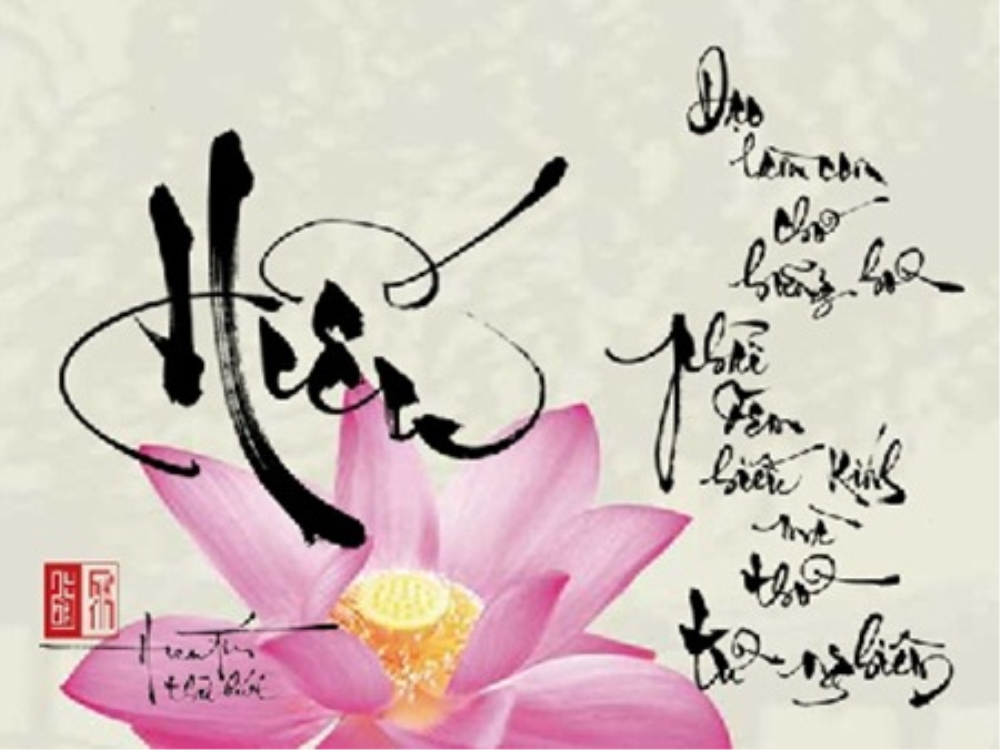 Hiếu
Đạo
làm con
chớ
hững hờ
Phải
đem
hiếu kính
mà
thờ
từ nghiêm